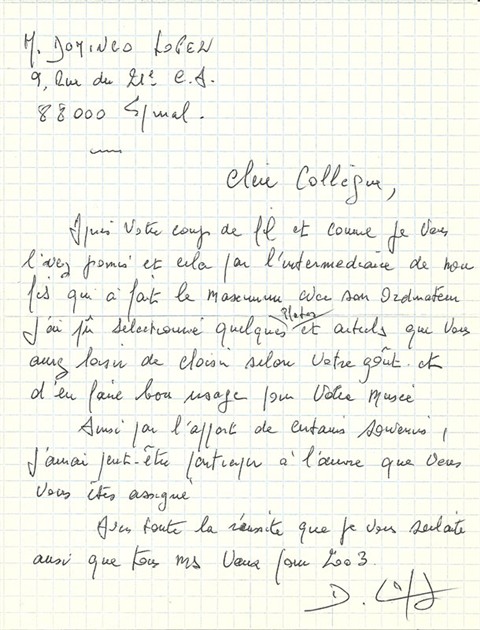 M. Domingo
9, Rue du 21e C.A.
88000 Epinal.
Cher Collègue,
Après Votre coup de fil et comme je Vous
l'avez promis et cela par l'intermediaire de mon
fils qui a fait le maximum avec son Ordinateur
J'ai pû sélectionné quelques Photos et articles que Vous
aurez loisir de choisir selon Votre goût. et
d'en faire bon usage pour Votre Musée
Ainsi par l'apport de certains souvenirs,
j'aurai peut-être participer à l'œuvre que Vous
Vous êtes assigné
Avec toute la réussite que je vous souhaite
ainsi que tous mes Vœux pour 2003.
D.